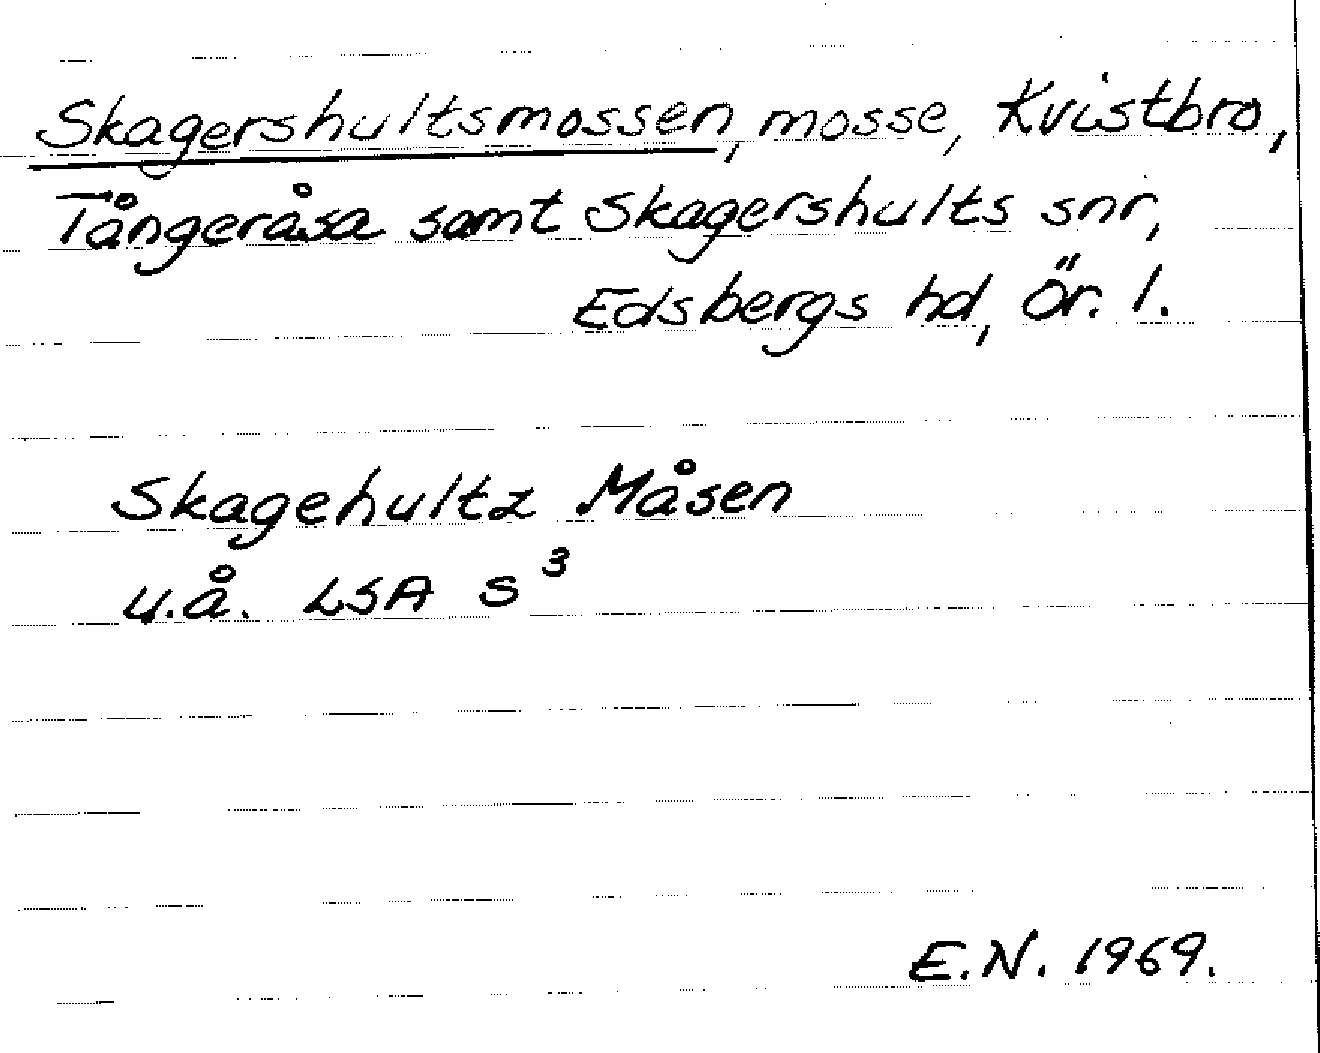 Skagershultsmossen, mosse, Kvistbro,
Tångeråsa samt Skagershults snr,
Edsbergs hd, Ör. l.
Skagehultz Måsen
u.å. LSA S³
E.N. 1969.